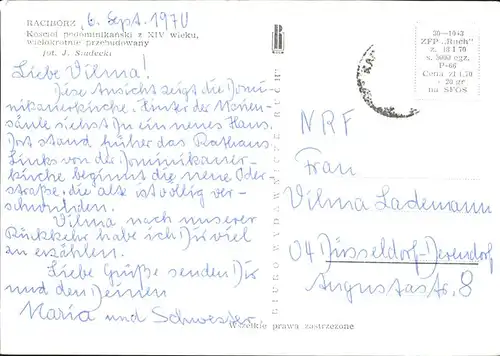 RACIBÓRZ
6. Sept. 1970
Kościół podominikański z XIV wieku,
wielokrotnie przebudowany
fot. J. Siudecki
Liebe Vilma!
Diese Ansicht zeigt die Domi-
nikanerkirche. Hinter der Marien-
säule siehst Du ein neues Haus.
Dort stand früher das Rathaus
Links von der Dominikaner-
kirche beginnt die neue Oder-
straße, die alte ist völlig ver-
schwunden.
Vilma nach unserer
Rückkehr habe ich Dir viel
zu erzählen.
Liebe Grüße senden Dir
und den Deinen
Maria und Schwester.
BIURO WYDAWNICZE RUCH
30-1043
ZFP „Ruch"
z. 18 I 70
s. 3092 egz.
P-66
Cena zł 1.70
+ 20 gr
na SFOS
NRF
Frau
Vilma Lademann
04 Düsseldorf-Derendorf
Augustastr. 8
Wszelkie prawa zastrzeżone